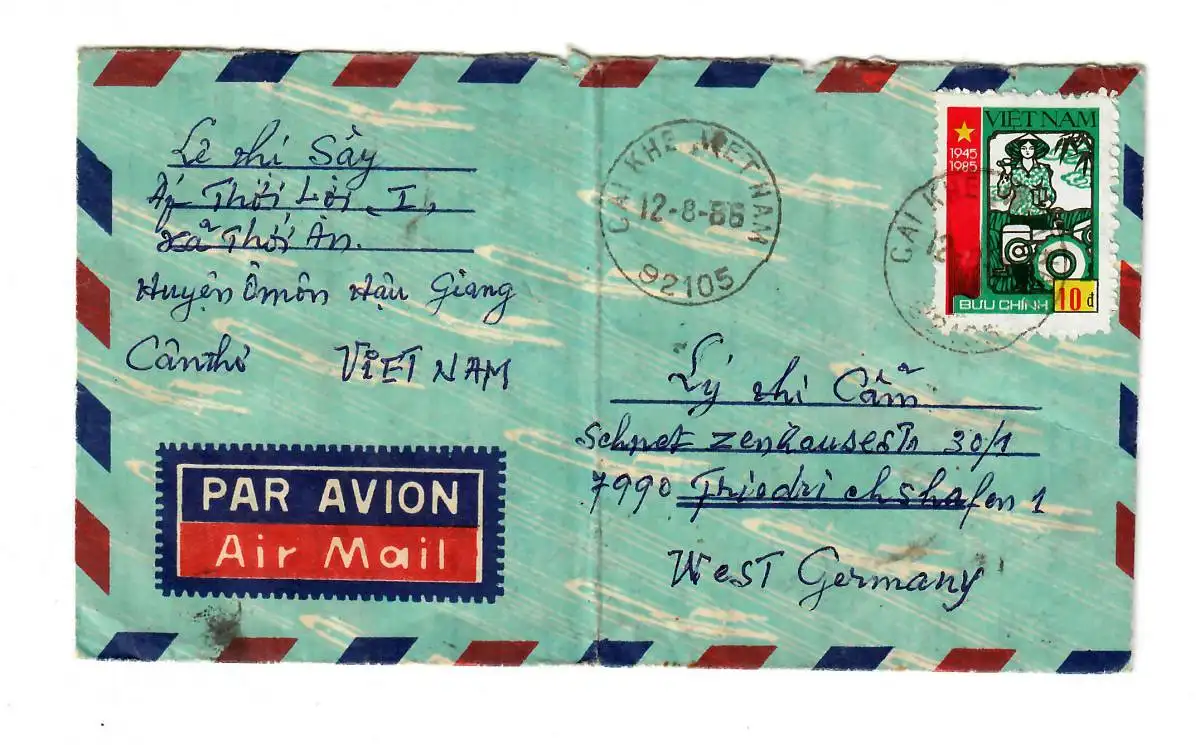 Lê thị Sảy
Ấp Thới Lợi I,
xã Thới An.
Huyện Ômôn Hậu Giang
Cần thơ VIỆT NAM
PAR AVION
Air Mail
CAI KHE VIETNAM
12-8-86
92105
VIỆT NAM
1945
1985
BƯU CHÍNH 10đ
CAI KHE
Lý thị Cẩm
Schnetzenhauserstr 30/1
7990 Friedrichshafen 1
West Germany